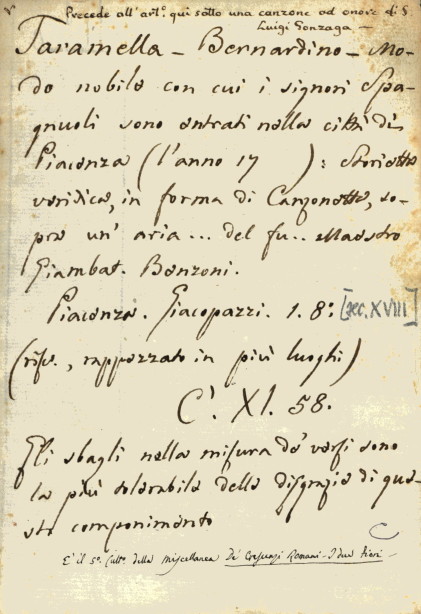 Precede all'art.o qui sotto una canzone ad onore di S.
Luigi Gonzaga —
Taramella – Bernardino – Mo-
do nobile con cui i signori Spa-
gnuoli sono entrati nella città di
Piacenza (l'anno 17 ) : Storietta
veridica, in forma di Canzonetta, so-
pra un' aria ... del fu .. Maestro
Giambat. Benzoni.
Piacenza. Giacopazzi. 1. 8:° [sec. XVIII]
(rife., rappezzato in più luoghi)
C'. XI. 58.
Gli sbagli nella misura de' versi sono
la più tolerabile delle disgrazie di que-
sto componimento
C
E' il 5.° della Miscellanea De' Crescenzi Romani – I due